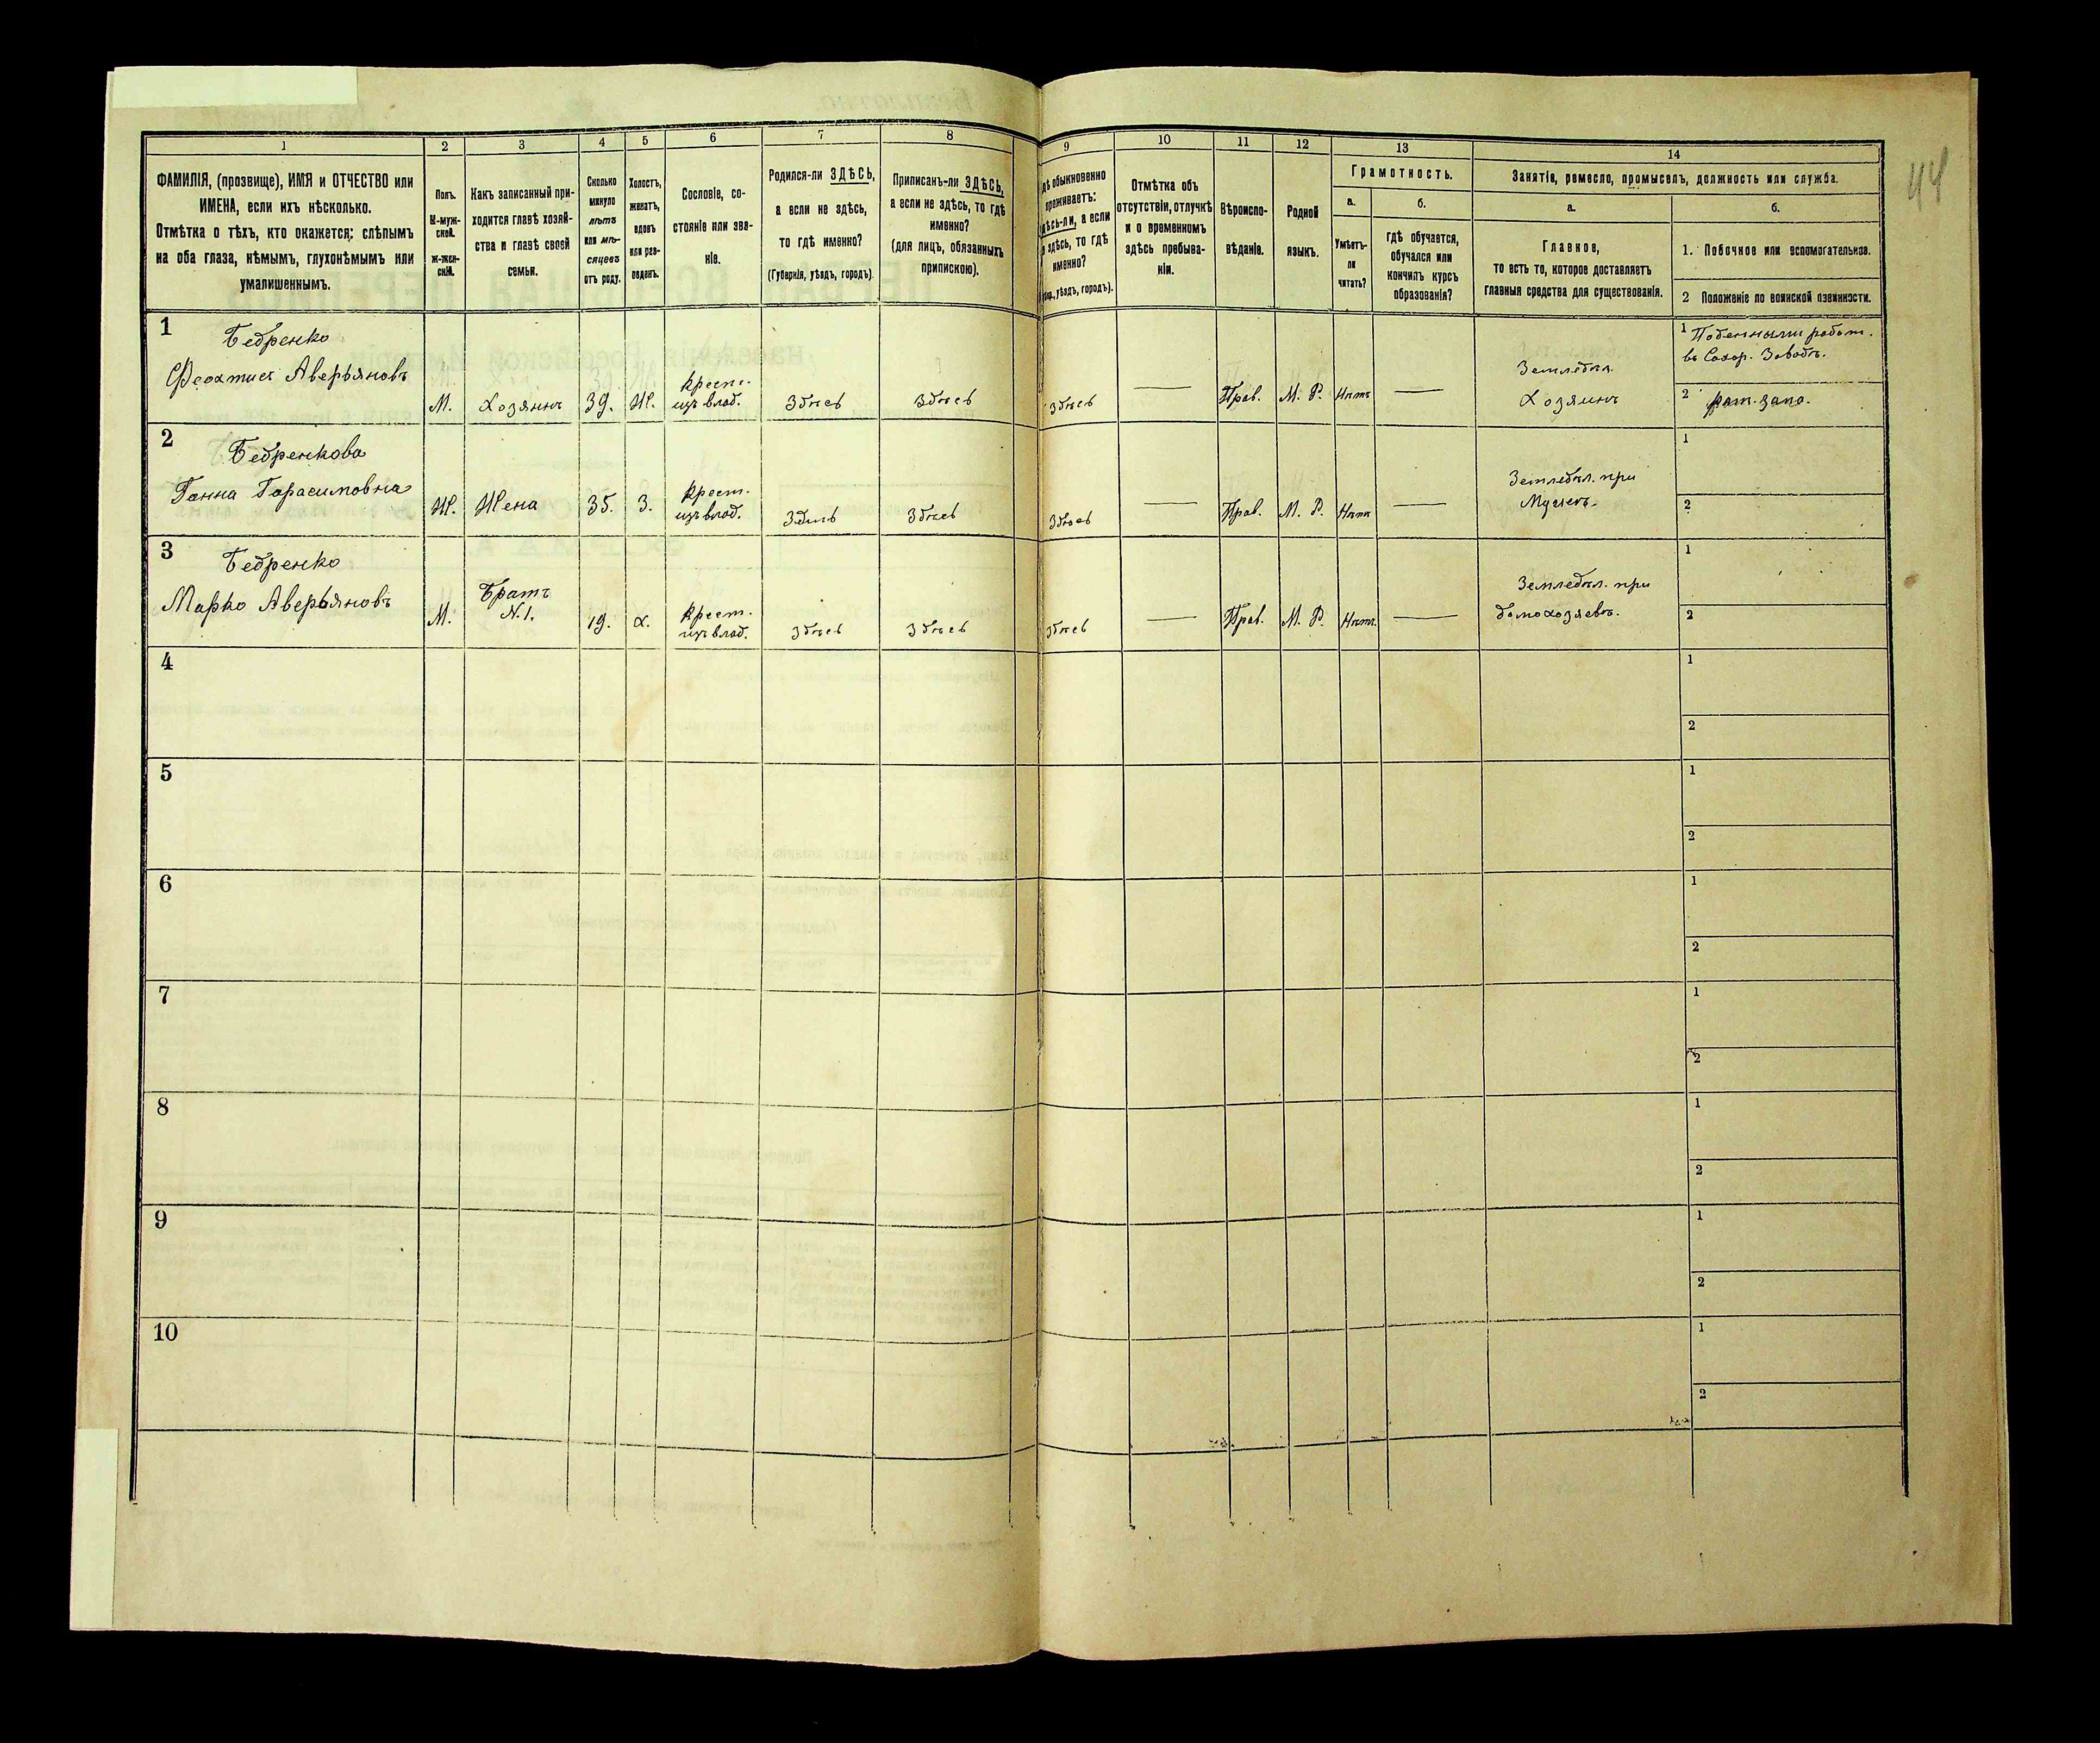 44
1
2
3
4
5
6
7
8
9
10
11
12
13
14
ФАМИЛІЯ, (прозвище), ИМЯ и ОТЧЕСТВО или
ИМЕНА, если ихъ нѣсколько.
Отмѣтка о тѣхъ, кто окажется: слѣпымъ
на оба глаза, нѣмымъ, глухонѣмымъ или
умалишеннымъ.
Полъ.
М-муж-
ской.
ж-жен-
скій.
Какъ записанный при-
ходится главѣ хозяй-
ства и главѣ своей
семьи.
Сколько
минуло
лѣтъ
или мѣ-
сяцевъ
отъ роду.
Холостъ,
женатъ,
вдовъ
или раз-
веденъ.
Сословіе, со-
стояніе или зва-
ніе.
Родился-ли ЗДѢСЬ,
а если не здѣсь,
то гдѣ именно?
(Губернія, уѣздъ, городъ).
Приписанъ-ли ЗДѢСЬ,
а если не здѣсь, то гдѣ
именно?
(для лицъ, обязанныхъ
припискою).
обыкновенно
а если
здѣсь, то гдѣ
именно?
уѣздъ, городъ).
Отмѣтка объ
отсутствіи, отлучкѣ
и о временномъ
здѣсь пребыва-
ніи.
Вѣроиспо-
вѣданіе.
Родной
языкъ.
Грамотность.
а.
Умѣетъ-
ли
читать?
б.
гдѣ обучается,
обучался или
кончилъ курсъ
образованія?
Занятіе, ремесло, промыселъ, должность или служба.
а.
Главное,
то есть то, которое доставляетъ
главныя средства для существованія.
б.
1. Побочное или вспомогательное.
2 Положеніе по воинской повинности.
1
Бедренко
Феохтист Аверьяновъ
М.
Хозяинъ
39.
Ж.
Крест.
изъ влад.
Здѣсь
Здѣсь
Здѣсь
—
Прав.
М. Р.
Нѣтъ
—
Земледѣл.
Хозяинъ
1 Поденными работ.
въ Сахар. Заводѣ.
2
2
Бедренкова
Ганна Гарасимовна
Ж.
Жена
35.
З.
Крест.
изъ влад.
Здѣсь
Здѣсь
Здѣсь
—
Прав.
М. Р.
Нѣтъ
—
Земледѣл. при
Мужѣ.
1
2
3
Бедренко
Марко Аверьяновъ
М.
Братъ
N.1.
19.
Х.
Крест.
изъ влад.
Здѣсь
Здѣсь
Здѣсь
—
Прав.
М. Р.
Нѣтъ.
—
Земледѣл. при
домохозяевѣ.
1
2
4
1
2
5
1
2
6
1
2
7
1
2
8
1
2
9
1
2
10
1
2